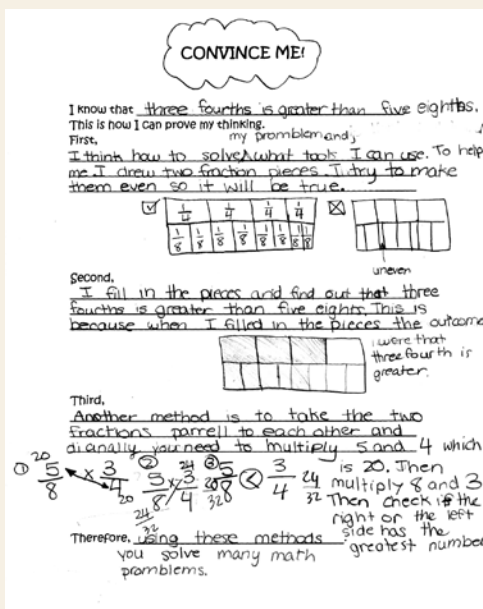 CONVINCE ME!
I know that three fourths is greater than five eighths.
This is how I can prove my thinking.
First,
my promblem and,
I think how to solve ^ what tools I can use. To help
me I drew two fraction pieces. I try to make
them even so it will be true.
1/4 1/4 1/4 1/4
1/8 1/8 1/8 1/8 1/8 1/8 1/8 1/8
uneven
Second,
I fill in the pieces and find out that three
fourths is greater than five eights. This is
because when I filled in the pieces the outcome
were that
three fourth is
greater.
Third,
Another method is to take the two
fractions parrell to each other and
dianally you need to multiply 5 and 4 which
is 20. Then
multiply 8 and 3
Then check if the
right or the left
side has the
greatest number
① 20 5/8 × 3/4 20
② 5/8 × 3/4 24 24/32
③ 20/32 5/8 < 3/4 24/32
Therefore, using these methods
you solve many math
promblems.